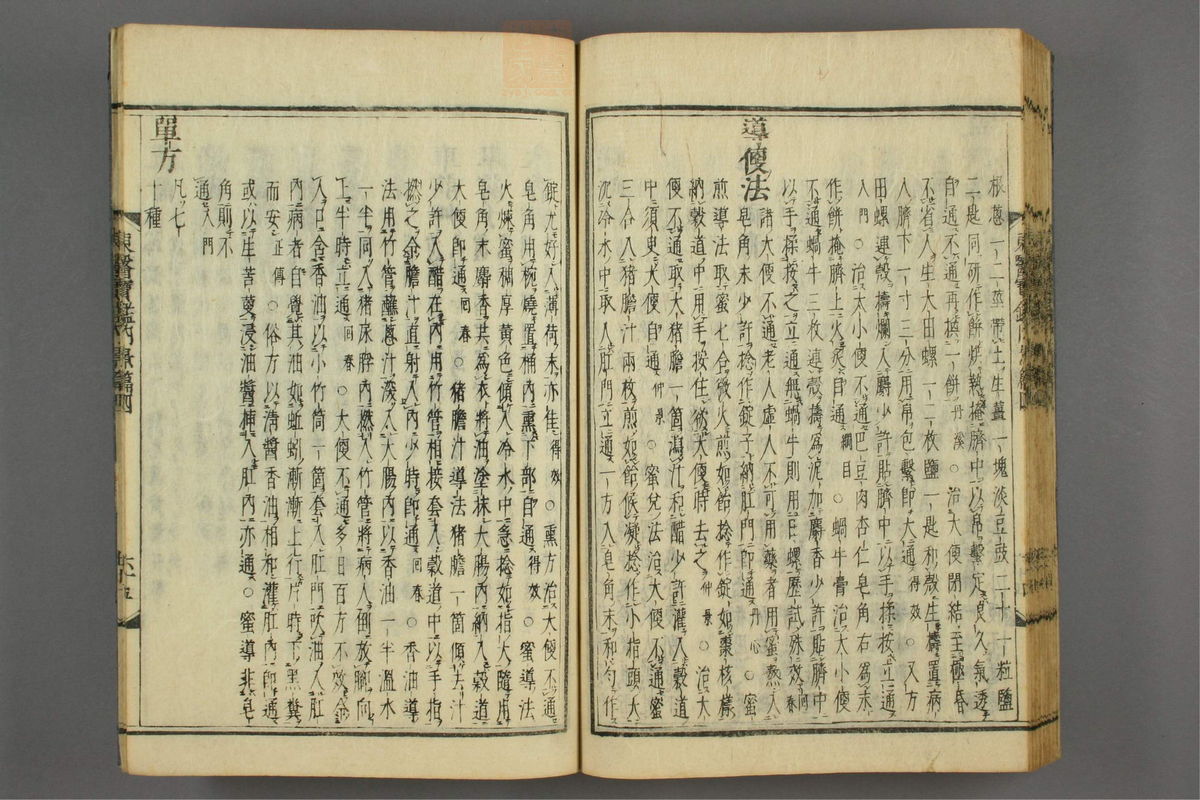 根葱一二莖帶土生薑一塊淡豆豉二十一粒鹽
二匙同研作餅烘熱掩臍中以帛繫定良久氣透
自通不通再換一餅丹溪○治大便閉結至極昏
不省人生大田螺一二枚鹽一匙和殼生擣置病
人臍下一寸三分用帛包繫卽大通得效○又方
田螺連殼擣爛入麝少許貼臍中以手揉按立通
入門○治大小便不通巴豆肉杏仁皂角右爲末
作餅掩臍上火灸自通綱目○蝸牛膏治大小便
不通蝸牛三枚連殼擣爲泥加麝香少許貼臍中
以手揉按之立通無蝸牛則用田螺歷試殊效回春
導便法
諸大便不通老人虛人不可用藥者用蜜熬入
皂角末少許捻作錠子納肛門卽通丹心○蜜
煎導法取蜜七合微火煎如飴捻作錠如棗核樣
納穀道中用手按住欲大便時去之仲景○治大
便不通取大猪膽一箇瀉汁和醋少許灌入穀道
中須臾大便自通仲景○蜜兌法治大便不通蜜
三合入猪膽汁兩枚煎如飴候凝捻作小指頭大
沉冷水中取入肛門立通一方入皂角末和勻作
錠尤好入薄荷末亦佳得效○熏方治大便不通
皂角用椀燒置桶內熏下部自通得效○蜜導法
火煉蜜稠厚黃色傾入冷水中急捻如指大隨用
皂角末麝香共爲衣將油塗抹大腸內納入穀道
大便卽通回春○猪膽汁導法猪膽一箇傾去汁
少許入醋在內用竹管相接套入穀道中以手指
撚之令膽汁直射入內少時卽通回春○香油導
法用竹管蘸葱汁深入大腸內以香油一半溫水
一半同入猪尿脬內撚入竹管將病人倒放脚向
上半時立通回春○大便不通多日百方不效令
人口含香油以小竹筒一箇套入肛門吹油入肛
內病者自覺其油如蚯蚓漸漸上行片時下黑糞
而安正傳○俗方以淸醬香油相和灌肛內卽通
或以生苦蔞浸油醬揷入肛內亦通○蜜導非皂
角則不
通入門
單方
凡七
十種
東醫寶鑑內景篇四